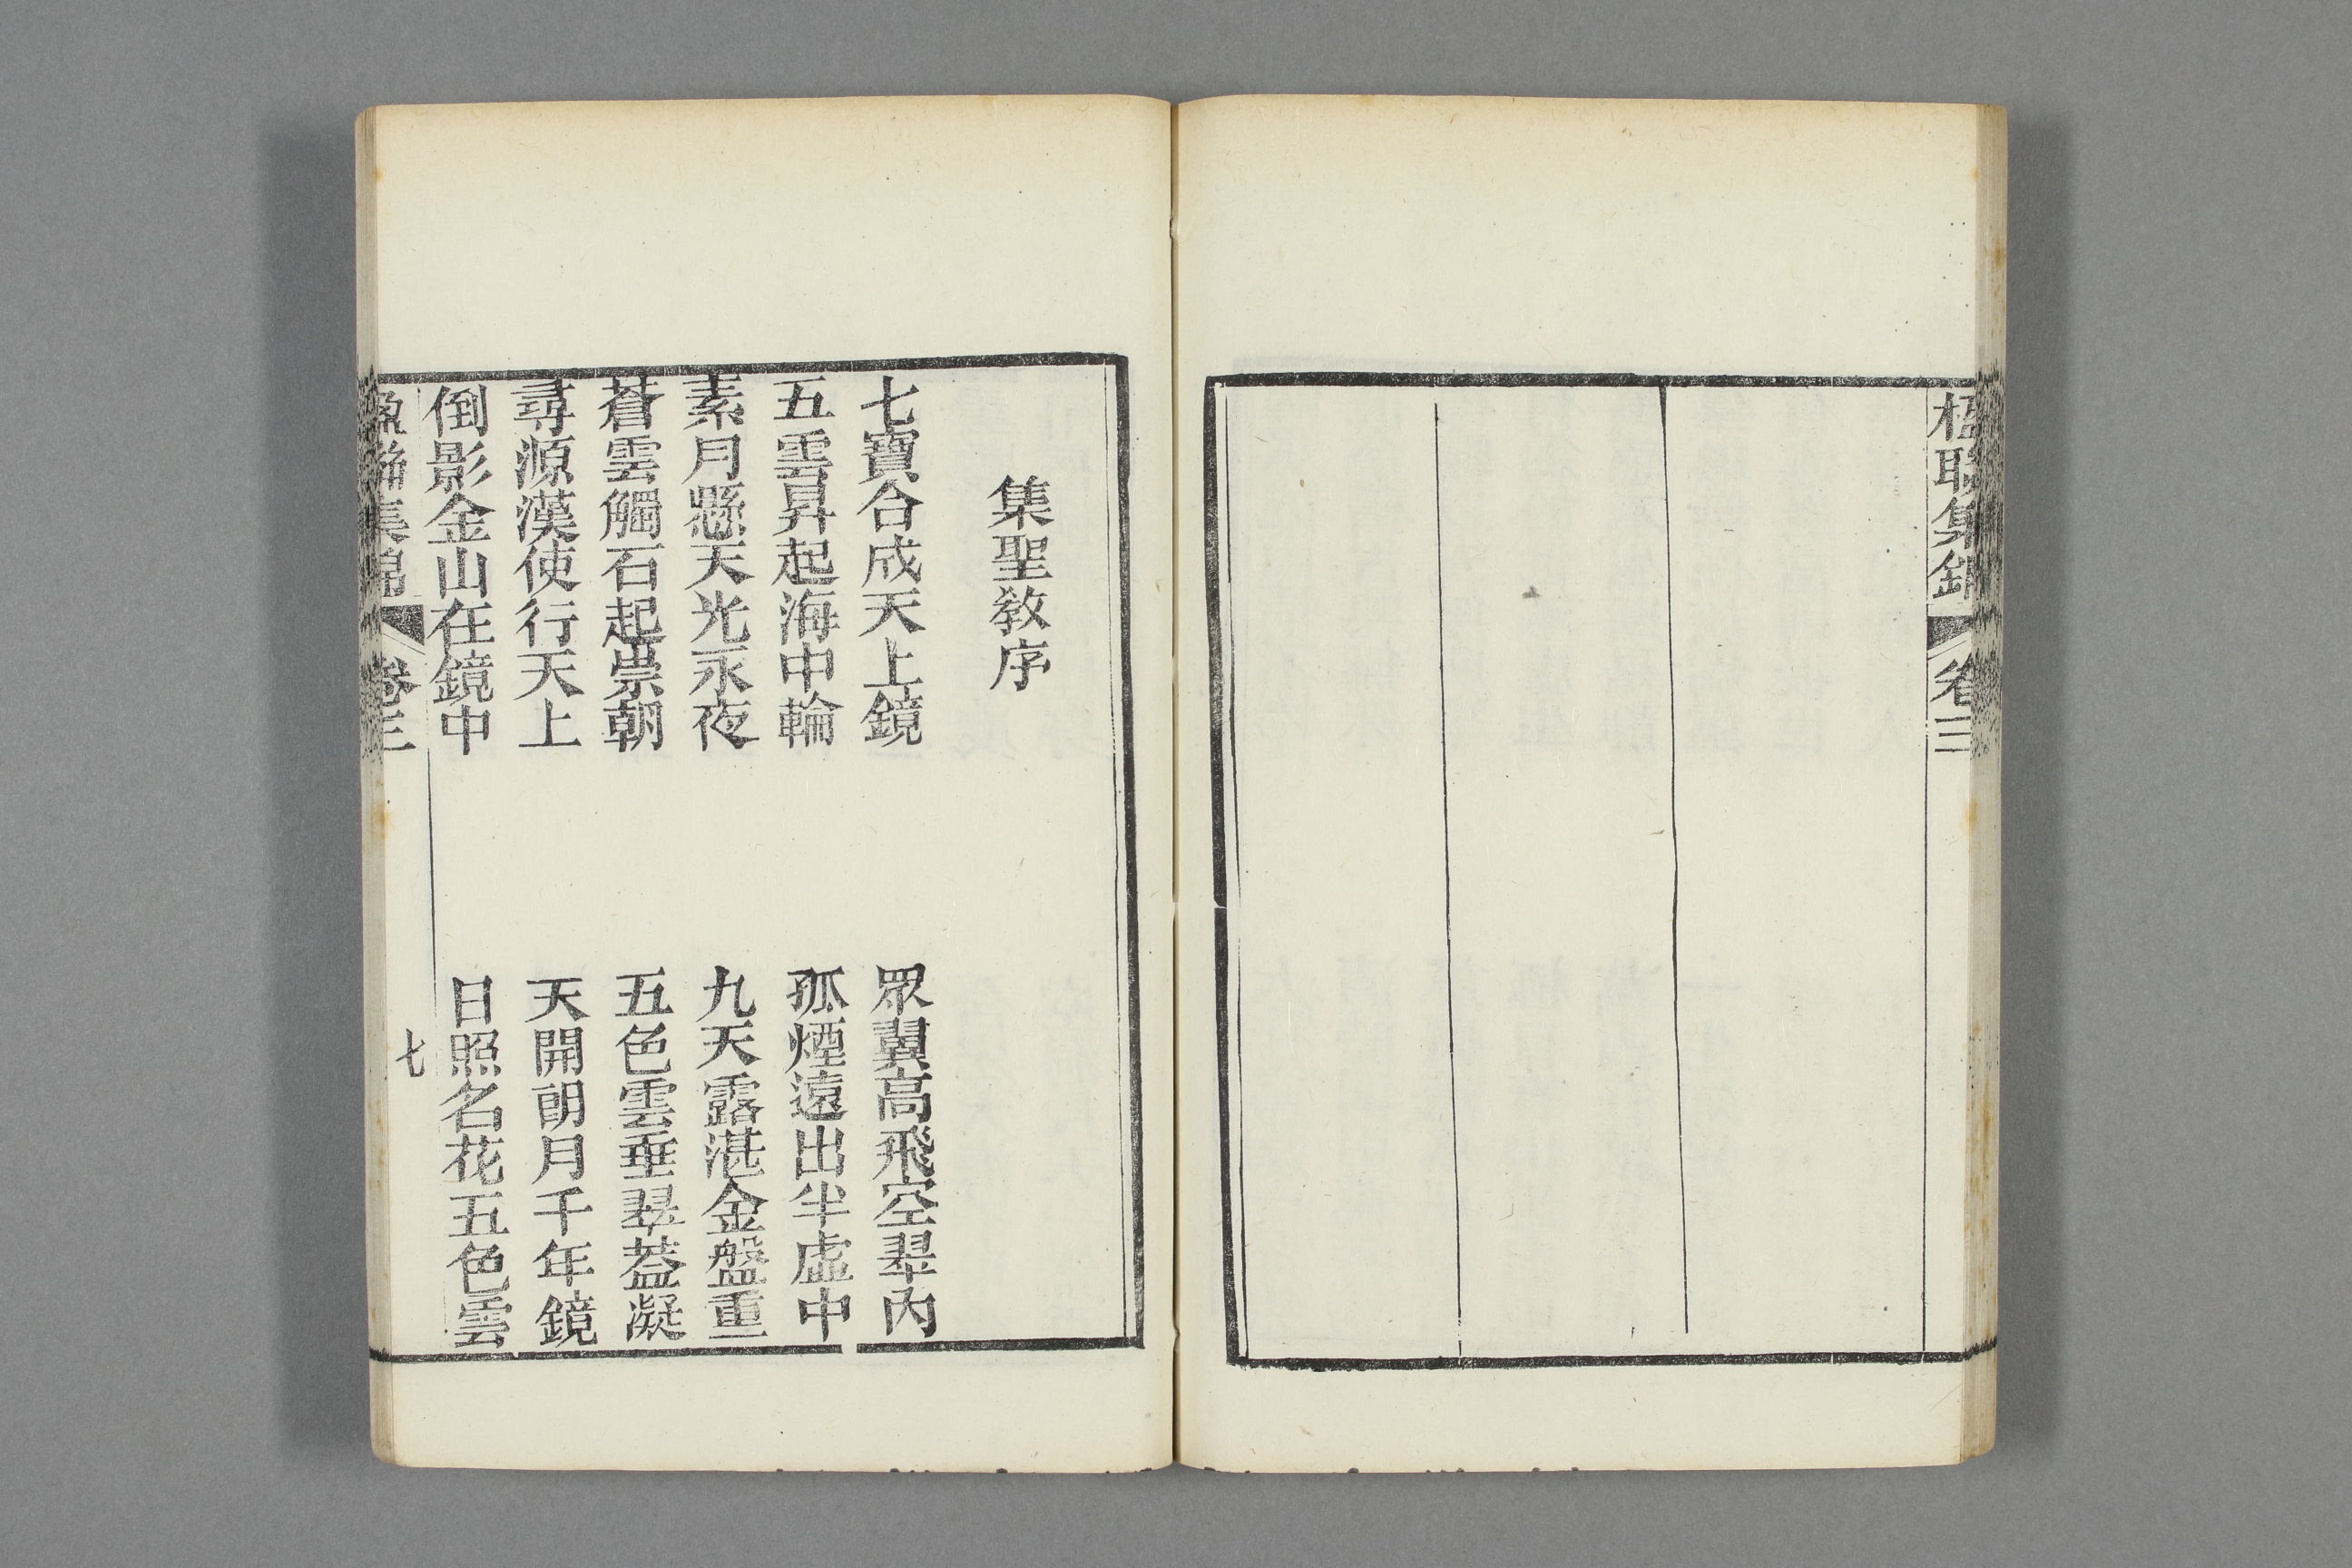 楹聯集錦
卷三
集聖教序
七寶合成天上鏡
眾翼高飛空翠內
五雲昇起海中輪
孤煙遠出半虛中
素月懸天光永夜
九天露湛金盤重
蒼雲觸石起崇朝
五色雲垂翠葢凝
尋源漢使行天上
天開朗月千年鏡
倒影金山在鏡中
日照名花五色雲
楹聯集錦
卷三
七